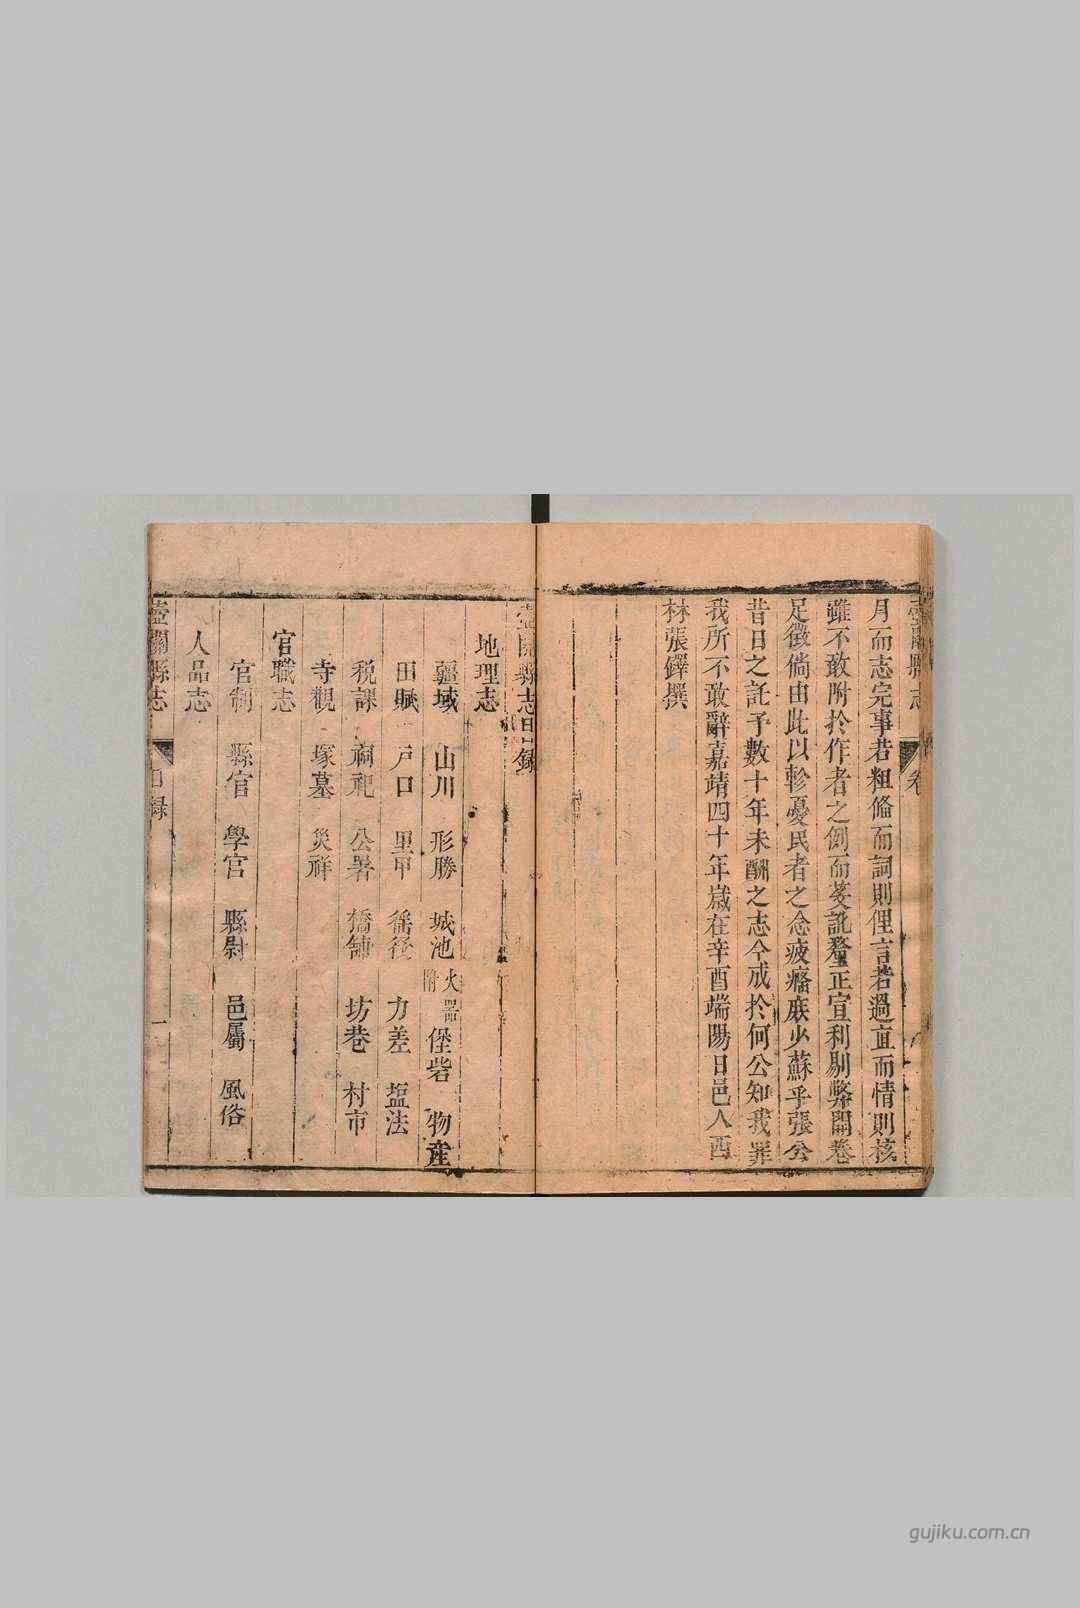 壺關縣志
卷
月而志完事若粗備而詞則俚言若過直而情則核
雖不敢附於作者之側而菱訛釐正宣利剔弊開卷
足徵倘由此以軫憂民者之念疲癃庶少蘇乎張公
昔日之託予數十年未酬之志今成於何公知我罪
我所不敢辭嘉靖四十年歲在辛酉端陽日邑人西
林張鐸撰
壺關縣志目錄
地理志
疆域 山川 形勝 城池 火器附 堡砦 物產
田賦 戶口 里甲 徭役 力差 塩法
稅課 祠祀 公署 橋舖 坊巷 村市
寺觀 塚墓 災祥
官職志
官制 縣官 學官 縣尉 邑屬 風俗
人品志
壺關縣志
目録
一
gujiku.com.cn